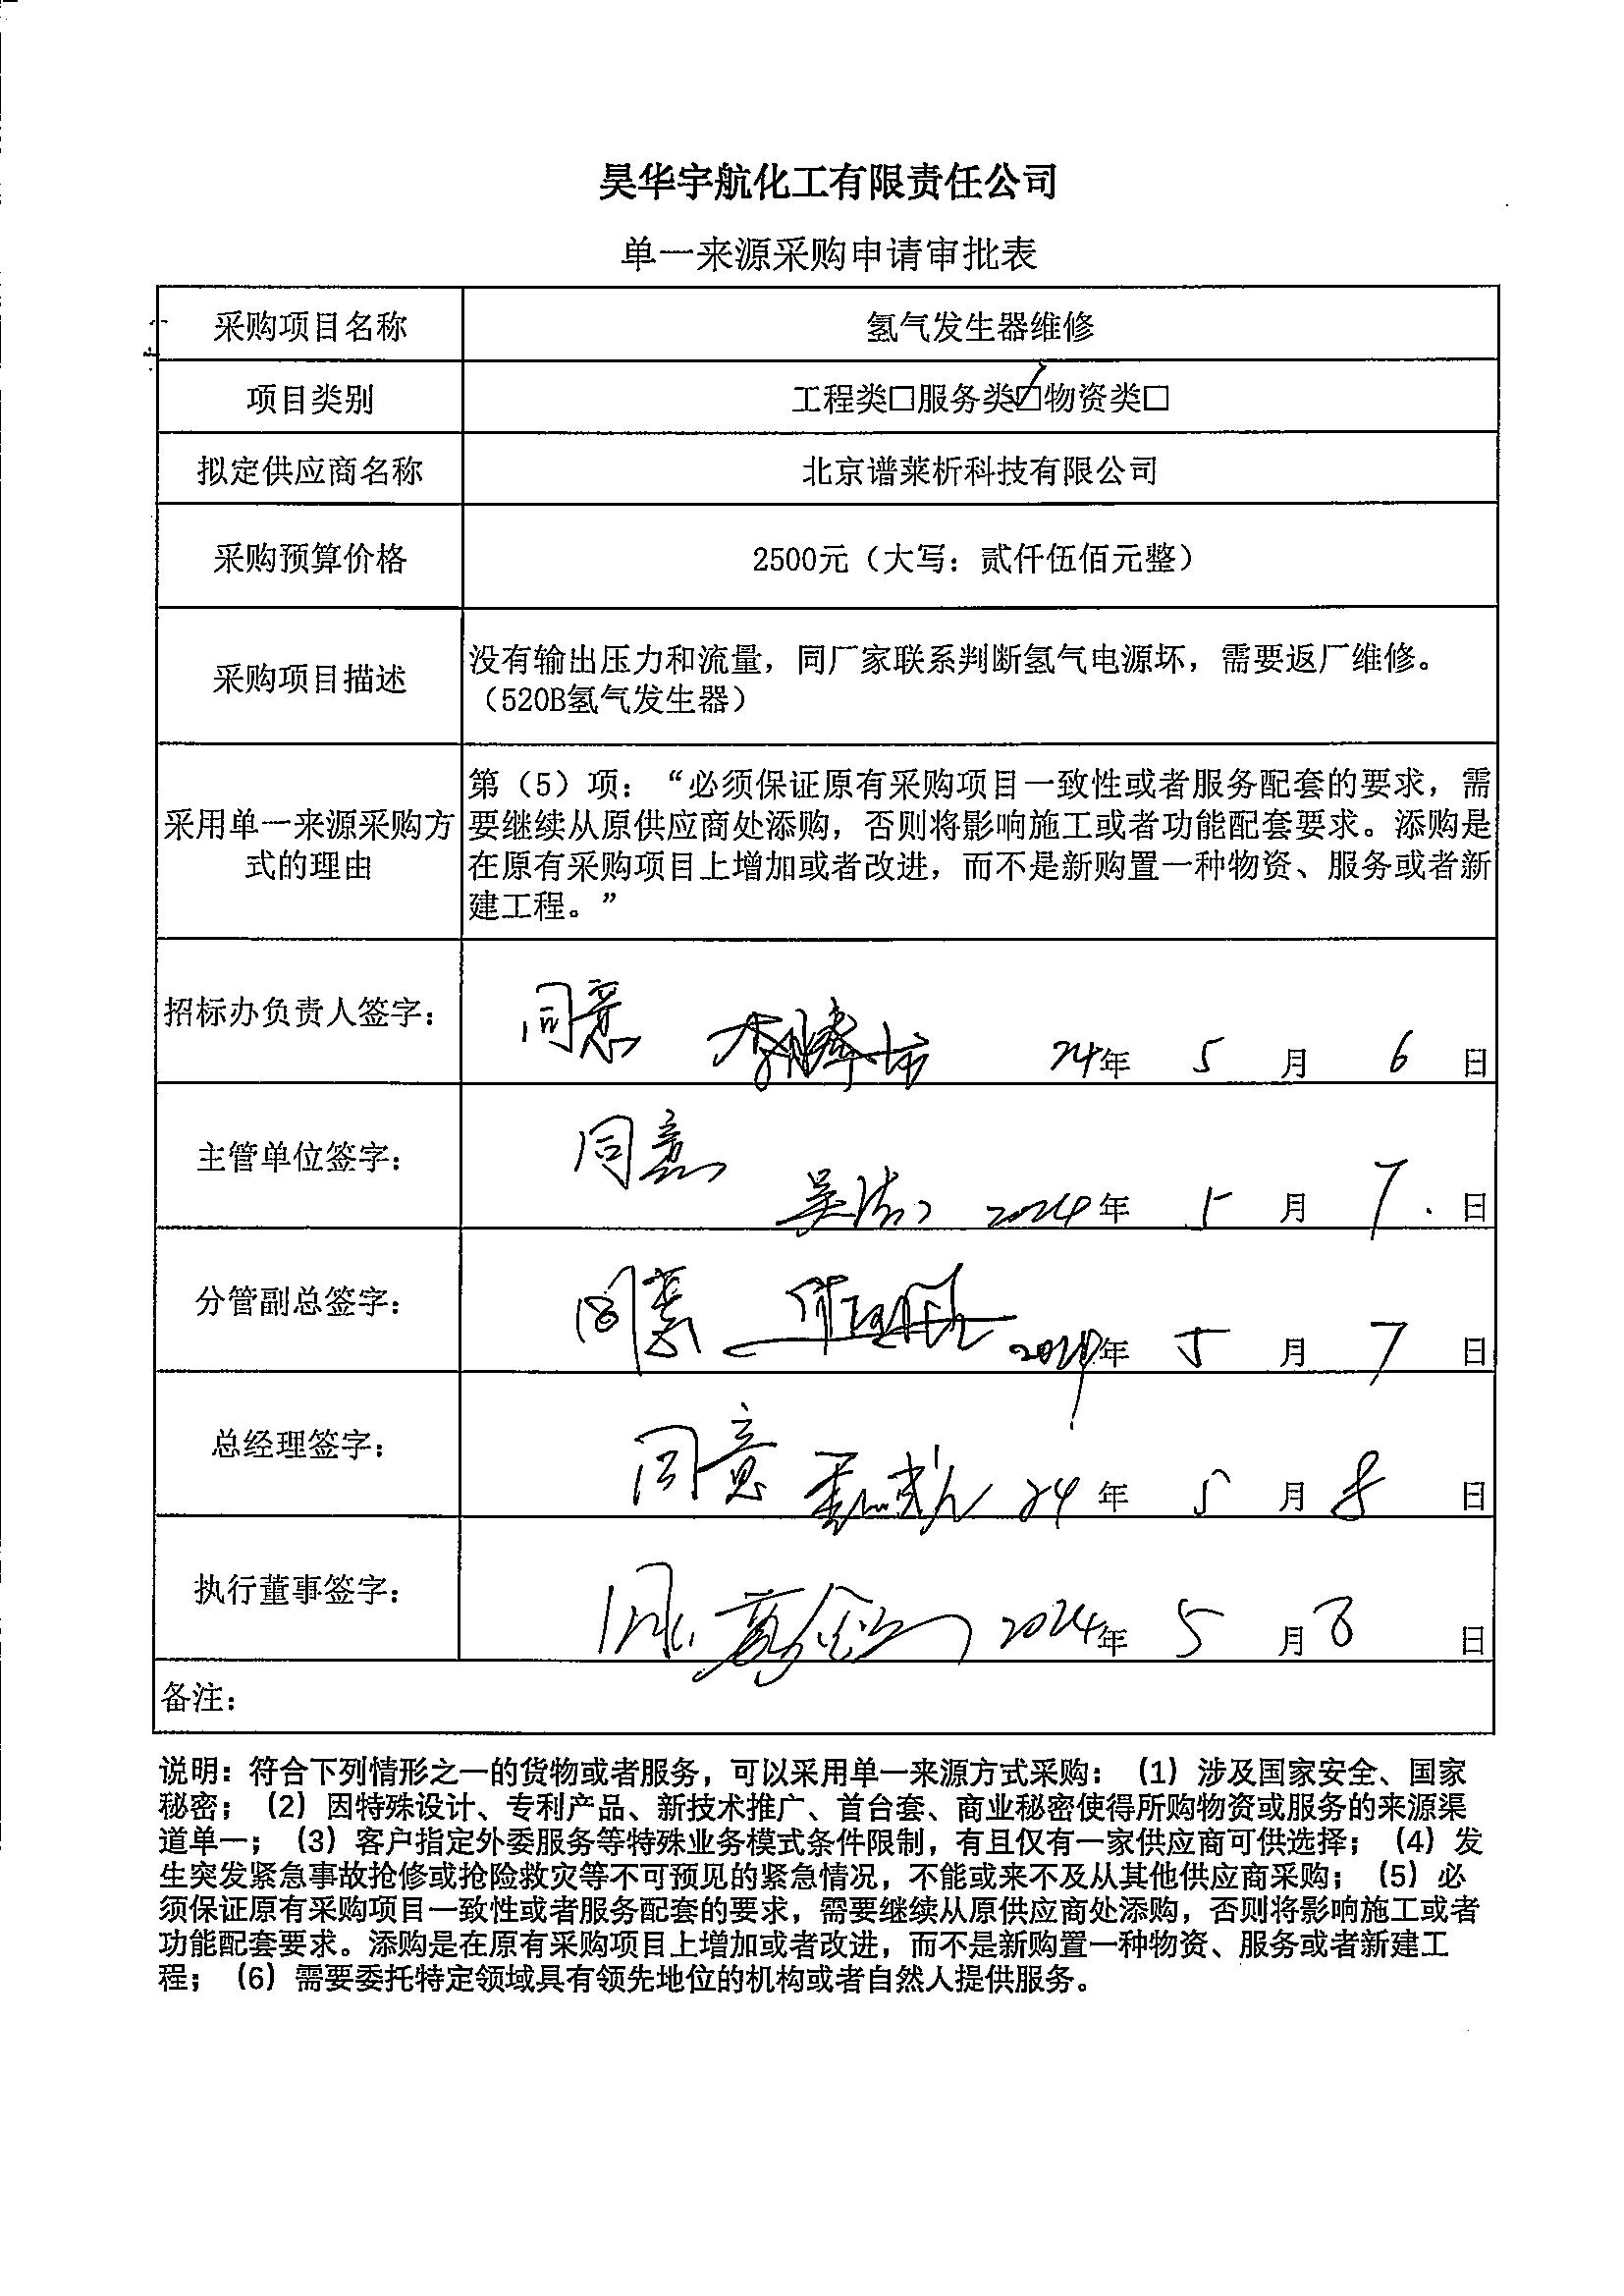 昊华宇航化工有限责任公司
单一来源采购申请审批表
采购项目名称 氢气发生器维修
项目类别 工程类□服务类☑物资类□
拟定供应商名称 北京谱莱析科技有限公司
采购预算价格 2500元（大写：贰仟伍佰元整）
采购项目描述 没有输出压力和流量，同厂家联系判断氢气电源坏，需要返厂维修。
（520B氢气发生器）
采用单一来源采购方式的理由 第（5）项：“必须保证原有采购项目一致性或者服务配套的要求，需
要继续从原供应商处添购，否则将影响施工或者功能配套要求。添购是
在原有采购项目上增加或者改进，而不是新购置一种物资、服务或者新
建工程。”
招标办负责人签字： 同意 24年 5 月 6 日
主管单位签字： 同意 2024年 5 月 7 日
分管副总签字： 同意 2024年 5 月 7 日
总经理签字： 同意 24年 5 月 8 日
执行董事签字： 2024年 5 月 8 日
备注：
说明：符合下列情形之一的货物或者服务，可以采用单一来源方式采购：（1）涉及国家安全、国家
秘密；（2）因特殊设计、专利产品、新技术推广、首台套、商业秘密使得所购物资或服务的来源渠
道单一；（3）客户指定外委服务等特殊业务模式条件限制，有且仅有一家供应商可供选择；（4）发
生突发紧急事故抢修或抢险救灾等不可预见的紧急情况，不能或来不及从其他供应商采购；（5）必
须保证原有采购项目一致性或者服务配套的要求，需要继续从原供应商处添购，否则将影响施工或者
功能配套要求。添购是在原有采购项目上增加或者改进，而不是新购置一种物资、服务或者新建工
程；（6）需要委托特定领域具有领先地位的机构或者自然人提供服务。